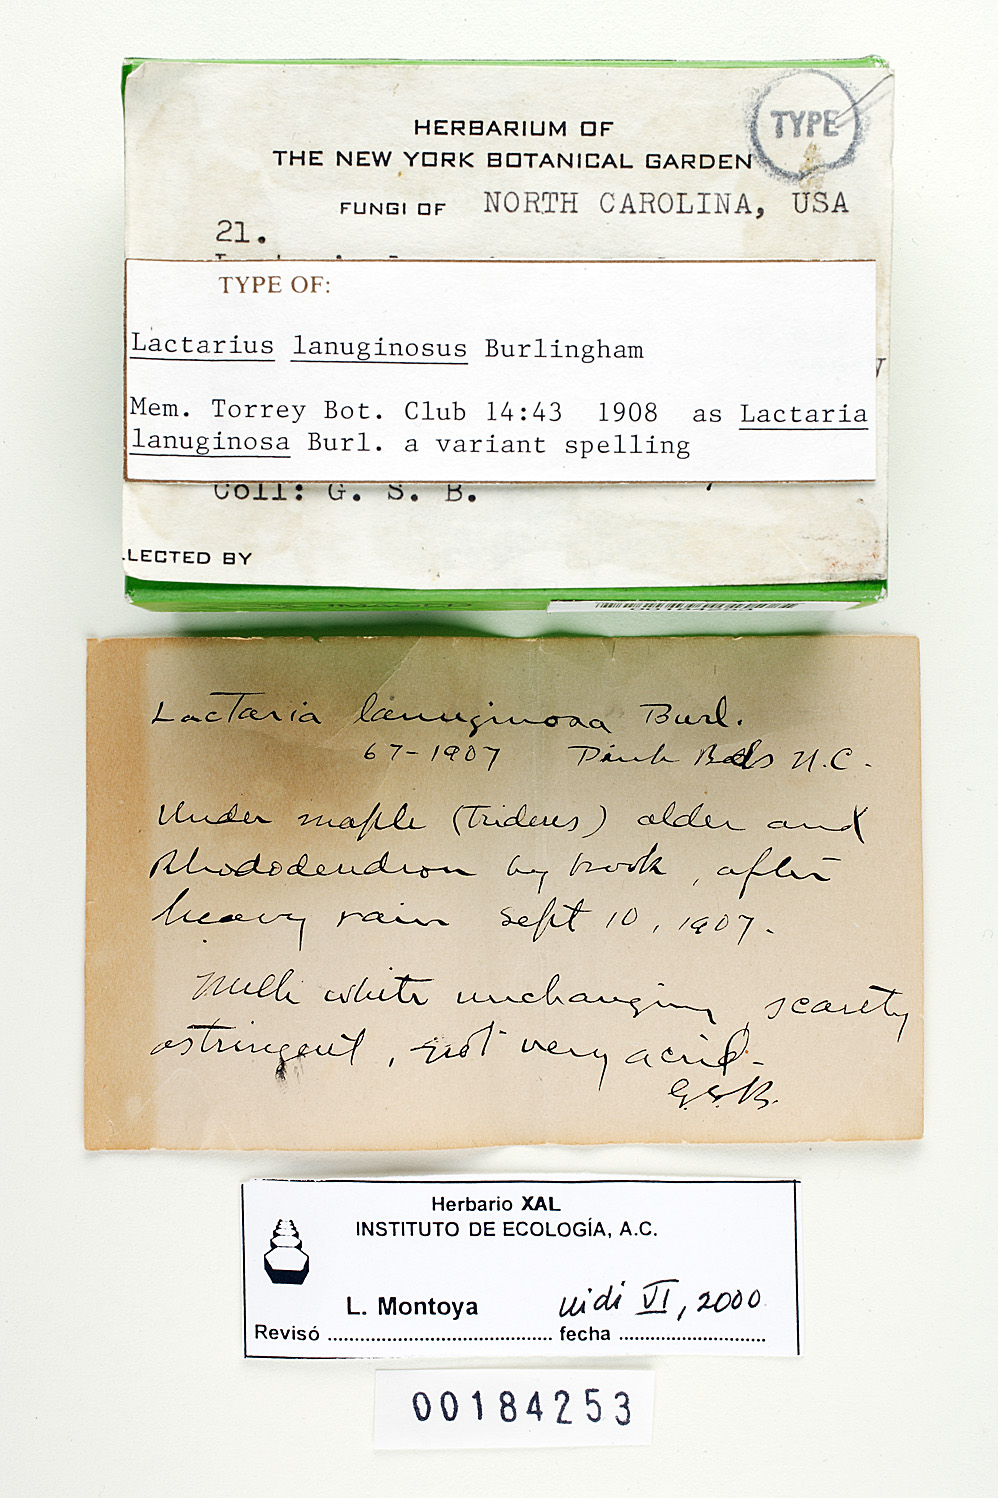 HERBARIUM OF
THE NEW YORK BOTANICAL GARDEN
TYPE
FUNGI OF NORTH CAROLINA, USA
21.
TYPE OF:
Lactarius lanuginosus Burlingham
Mem. Torrey Bot. Club 14:43 1908 as Lactaria
lanuginosa Burl. a variant spelling
Coll: G. S. B.
LLECTED BY
Lactaria lanuginosa Burl.
67-1907 Pink Beds N.C.
Under maple (Tridens) alder and
Rhododendron by brook, after
heavy rain Sept 10, 1907.
Milk white unchanging, scarcely
astringent, not very acrid.
G.S.B.
Herbario XAL
INSTITUTO DE ECOLOGÍA, A.C.
L. Montoya vidi VI, 2000
Revisó fecha
00184253